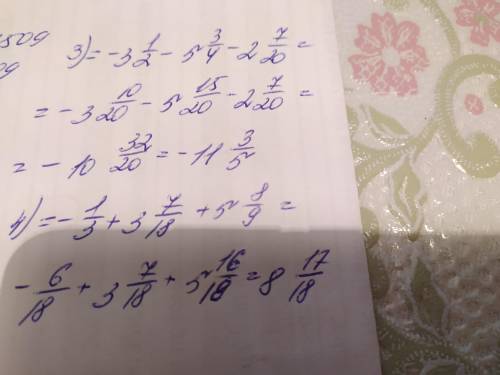 509
9
3) = -3 1/2 - 5 3/4 - 2 7/20 =
= -3 10/20 - 5 15/20 - 2 7/20 =
= -10 32/20 = -11 3/5
4) = -1/3 + 3 7/18 + 5 8/9 =
-6/18 + 3 7/18 + 5 16/18 = 8 17/18